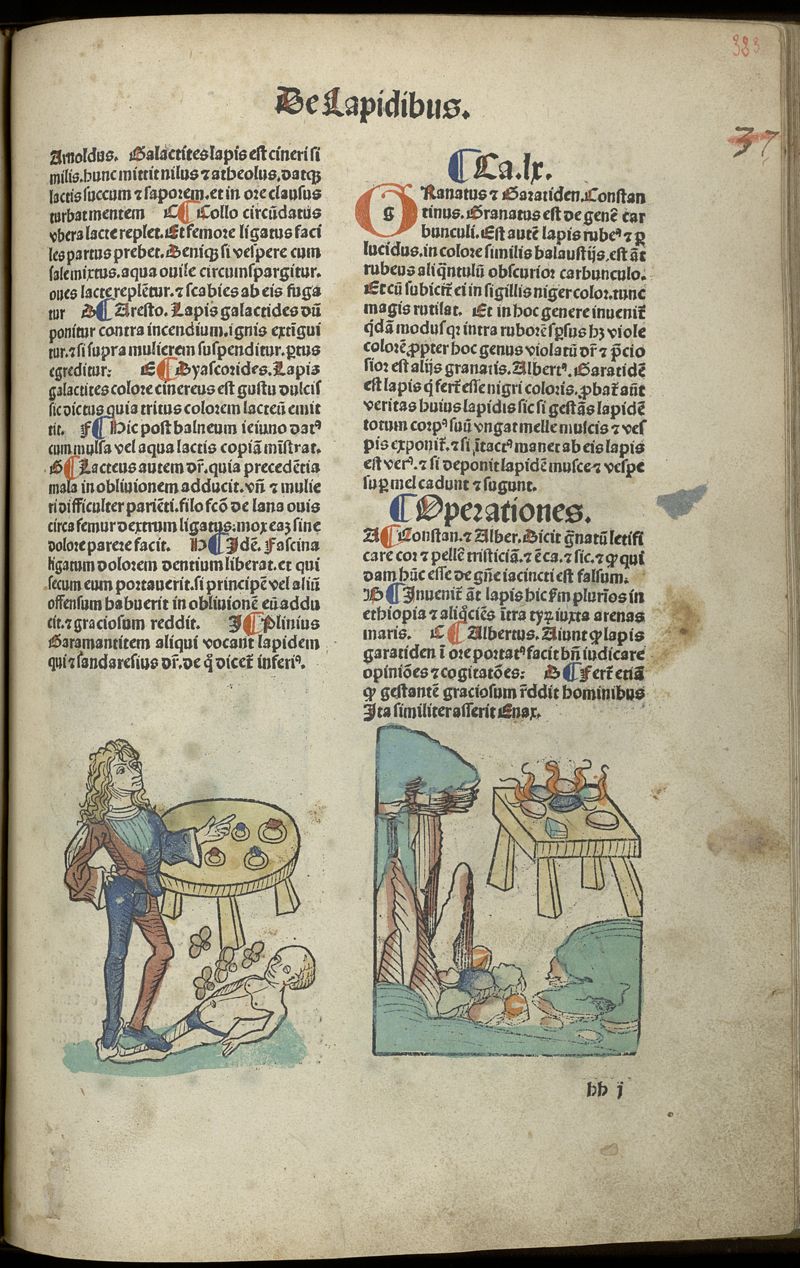 383
37
De Lapidibus.
Arnoldus. Galactites lapis est cineri si
milis.hunc mittit nilus ⁊ atheolus.datqꝫ
lactis succum ⁊ saporem.et in ore clausus
turbat mentem C ¶ Collo circūdatus
vbera lacte replet. Et femore ligatus faci
les partus prebet. Deniqꝫ si vespere cum
sale mixtus.aqua ouile circumspargitur.
oues lacte replētur.⁊ scabies ab eis fuga
tur D ¶ Aresto. Lapis galactides dū
ponitur contra incendium.ignis extigui
tur.⁊ si supra mulierem suspenditur.ptus
egreditur: E ¶ Dyascorides. Lapis
galactites colore cinereus est gustu dulcis
sic dictus quia tritus colorem lacteū emit
tit. F ¶ Hic post balneum ieiuno datꝰ
cum mulsa vel aqua lactis copiā mīstrat.
G ¶ Lacteus autem dr̄. quia precedētia
mala in obliuionem adducit. vñ ⁊ mulie
ri difficulter pariēti.filo fcō de lana ouis
circa femur dextrum ligatus.mox eaꝫ sine
dolore parere facit. H ¶ Idē. Fascina
ligatum dolorem dentium liberat. et qui
secum eum portauerit.si principē vel aliū
offensum habuerit in obliuionē eū addu
cit.⁊ graciosum reddit. I ¶ Plinius
Garamantitem aliqui vocant lapidem
qui ⁊ sandaresius dr̄. de q̄ dicet̄ inferiꝰ.
¶ Ca.lx.
G g Ranatus ⁊ Garatiden. Constan
tinus. Granatus est de genē car
bunculi. Est autē lapis rubeꝰ ⁊ ꝑ
lucidus.in colore similis balaustijs.est āt
rubeus aliq̄ntulū obscurior carbunculo.
Et cū subicit̄ ei in sigillis niger color.tunc
magis rutilat. Et in hoc genere inuenit̄
q̄dā modus qꝛ intra ruborē sꝑsus hꝫ viole
colorē.ꝓpter hoc genus violatū dr̄ ⁊ p̄cio
sior est alijs granatis. Albertꝰ. Garatidē
est lapis q̄ fert̄ esse nigri coloris.ꝓbat̄ aūt
veritas huius lapidis sic si gestās lapidē
totum corpꝰ suū vngat melle muscis ⁊ ves
pis exponit̄.⁊ si ītactꝰ manet ab eis lapis
est verꝰ.⁊ si deponit lapidē musce ⁊ vespe
suꝑ mel cadunt ⁊ sugunt.
¶ Operationes.
A ¶ Constan. ⁊ Alber. Dicit g̃natū letifi
care cor ⁊ pellē tristiciā.⁊ ē ca.⁊ sic.⁊ ꝙ qui
dam hūc esse de gñe iacincti est falsum.
B ¶ Inuenit̄ āt lapis hic fm plurīos in
ethiopia ⁊ aliq̄ciēs ītra tyꝝ iuxta arenas
maris. C ¶ Albertus. Aiunt ꝙ lapis
garatiden ī ore portatꝰ facit bñ iudicare
opiniōes ⁊ cogitatōes: D ¶ Fert̄ etiā
ꝙ gestantē graciosum r̄ddit hominibus
Ita similiter asserit Enax.
bb j